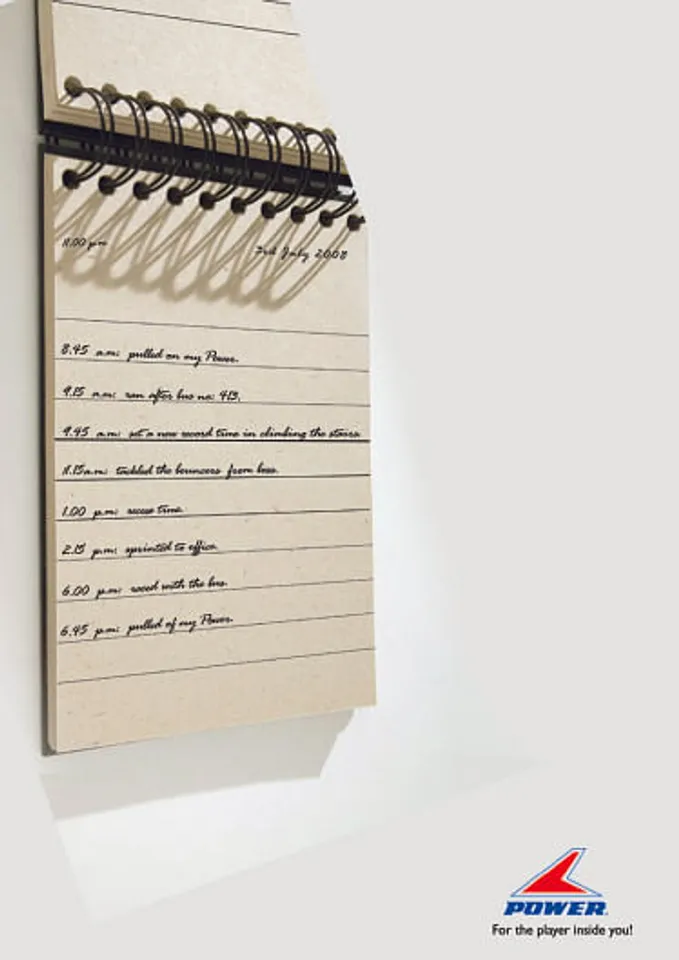 11.00 pm
3rd July 2008
8.45 a.m: pulled on my Power.
9.15 a.m: ran after bus no: 413.
9.45 a.m: set a new record time in climbing the stairs.
11.15a.m: tackled the bouncers from boss.
1.00 p.m: recess time.
2.15 p.m: sprinted to office.
6.00 p.m: raced with the bus.
6.45 p.m: pulled of my Power.
POWER
For the player inside you!